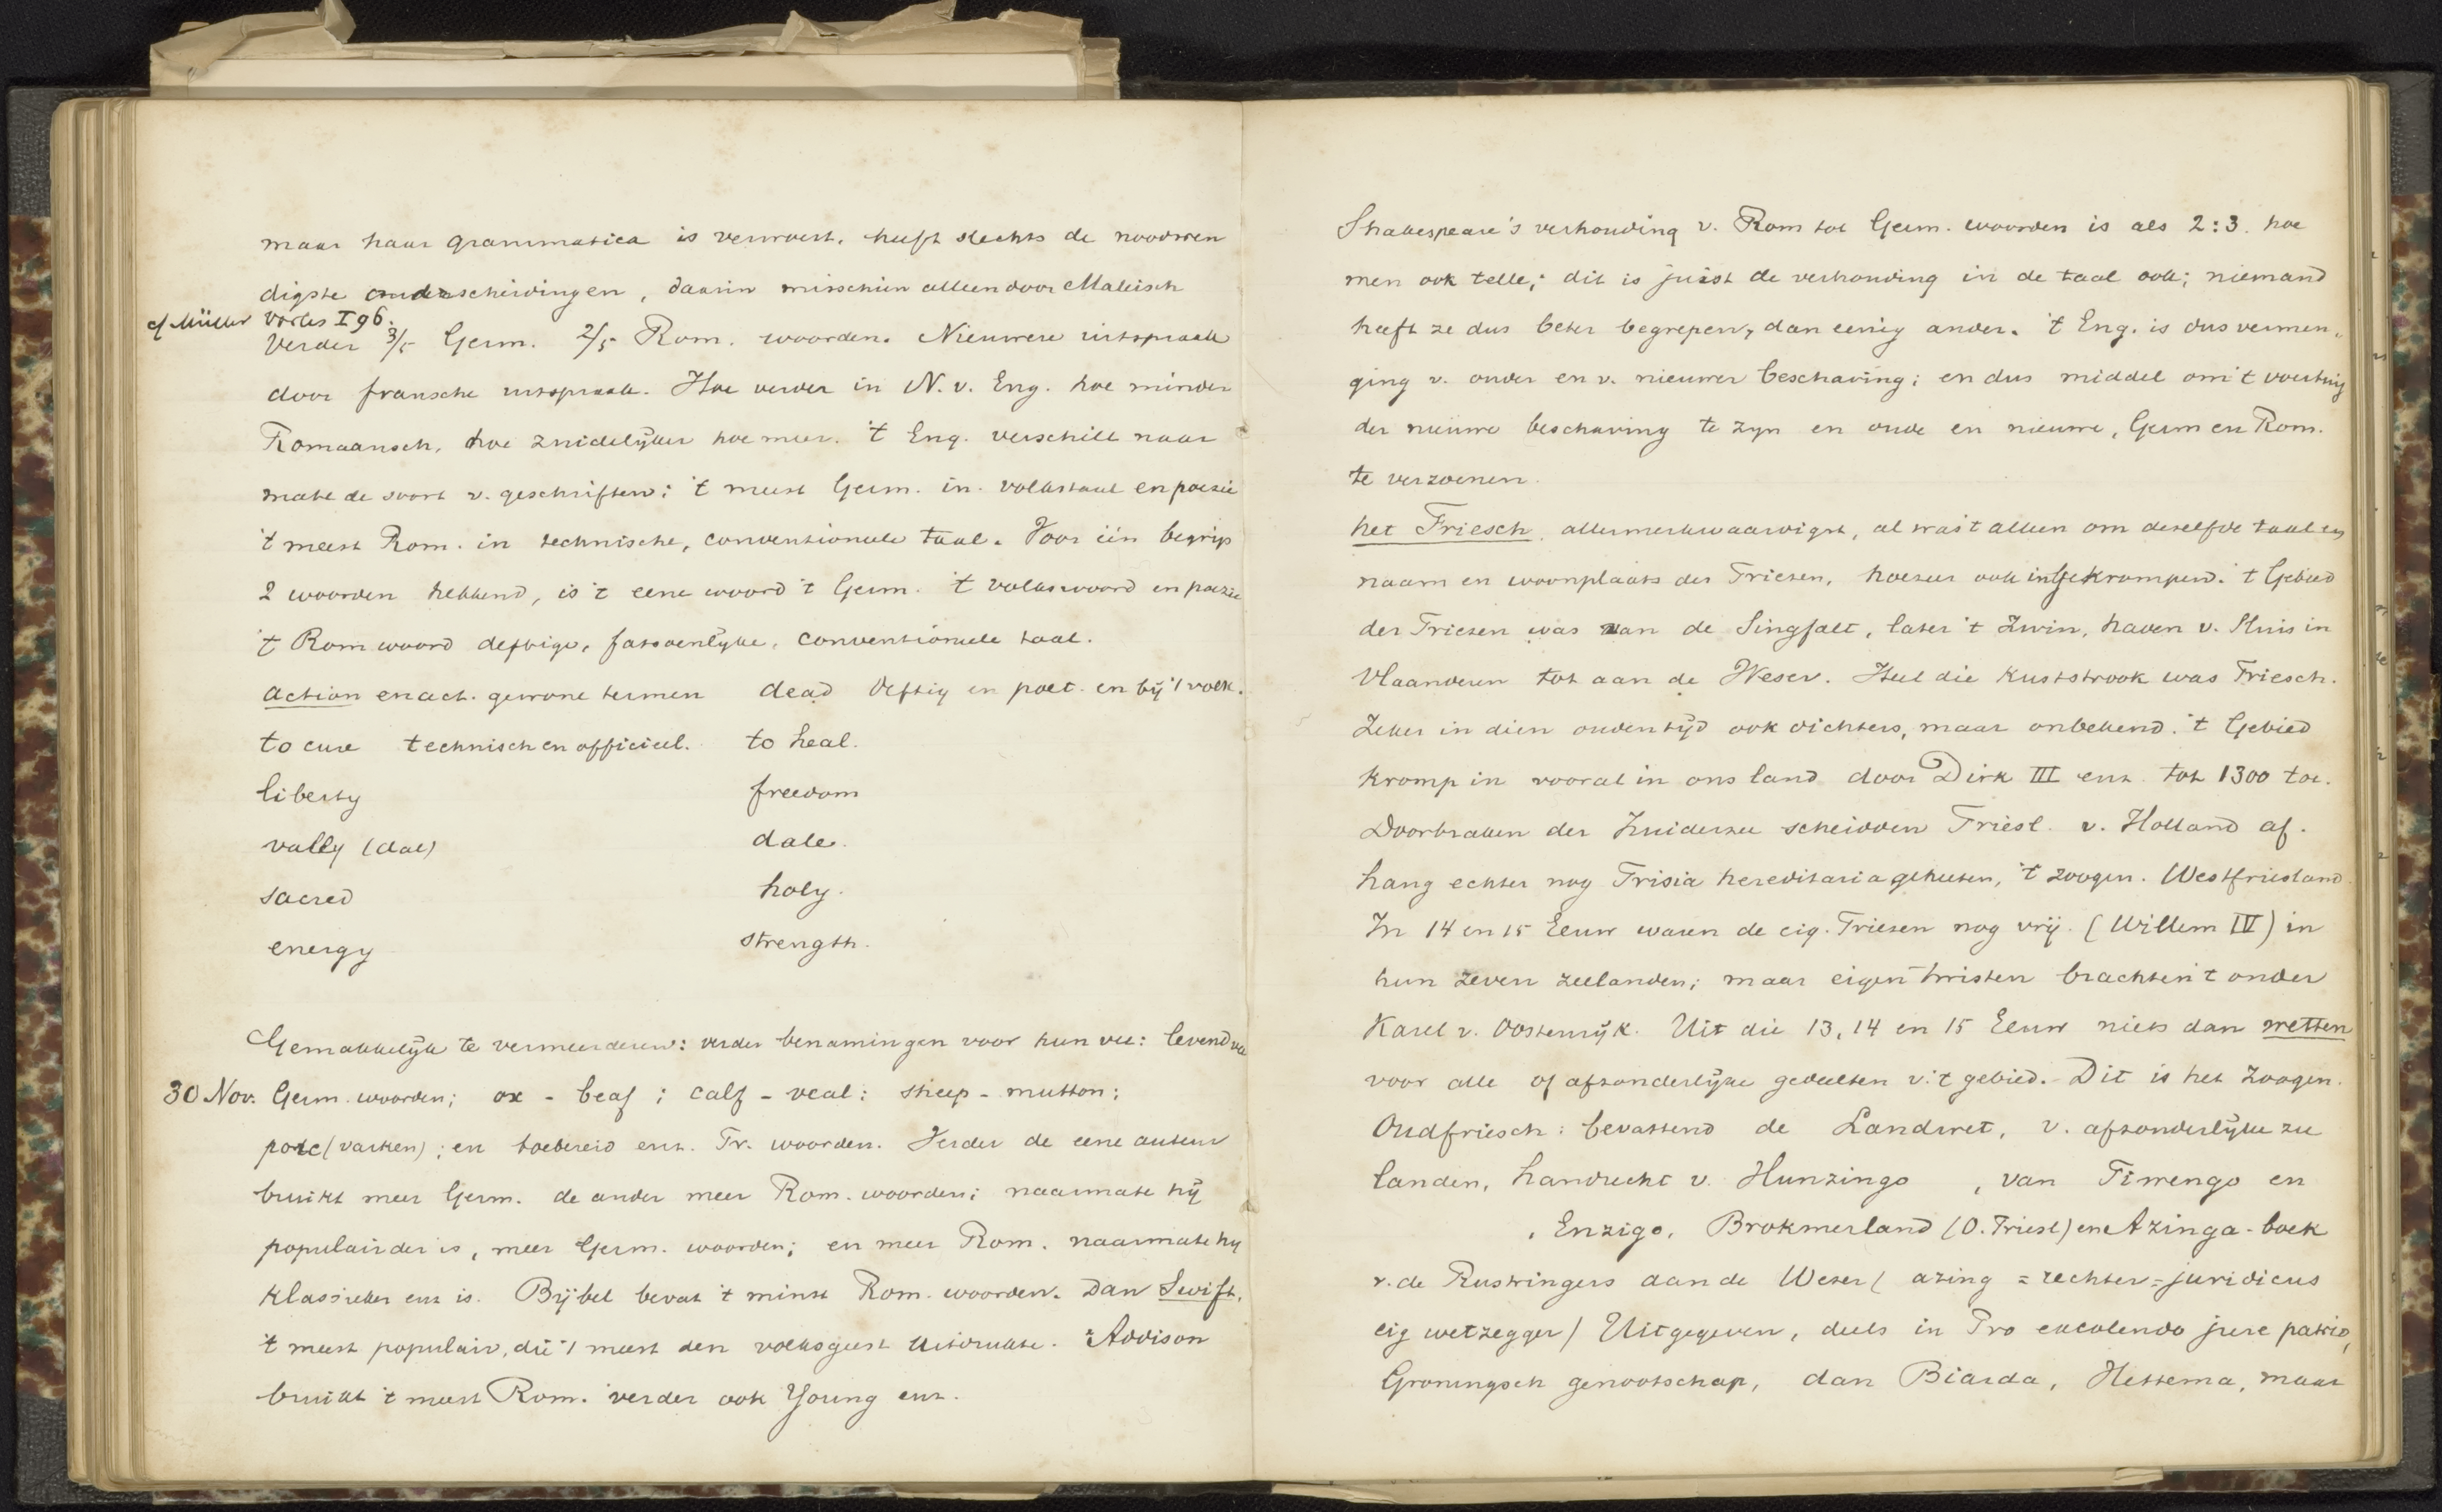 maar haar grammatica is verwoest. heeft slechts de noodwen
digste onderscheidingen, daarin misschien alleen door Maleisch
cf Müller Vorles I 96.
Verder 3/5 Germ. 2/5 Rom. woorden. Nieuwere uitspraak
door fransche uitspraak. Hoe verder in N. v. Eng. hoe minder
Romaansch, hoe zuidelijker hoe meer. 't Eng. verschilt naar
mate de soort v. geschriften: 't meest Germ. in volkstaal en poezie
't meest Rom. in technische, conventioneele taal. Voor één begrip
2 woorden hebbend, is 't eene woord 't Germ. 't volkswoord en poezie
't Rom woord deftige, fatsoenlyke, conventioneele taal.
action en act. gewone termen dead deftig en poet. en bij 't volk.
to cure technisch en officieel. to heal.
liberty freedom
vally (dal) dale.
sacred holy.
energy strength.
Gemakkelijk te vermeerderen: verder benamingen voor hun vee: levend vee
30 Nov. Germ. woorden; ox - beaf; calf - veal: sheep - mutton;
porc (varken); en toebereid enz. Fr. woorden. Verder de eene auteur
bruikt meer Germ. de ander meer Rom. woorden; naarmate hij
populairder is, meer Germ. woorden; en meer Rom. naarmate hy
klassieker enz is. Bijbel bevat 't minst Rom. woorden. Dan Swift,
't meest populair, die 't meest den volksgeest uitdrukte. Addison
bruikt 't meest Rom. verder ook Young enz.
Shakespeare's verhouding v. Rom tot Germ. woorden is als 2:3. hoe
men ook telle; dit is juist de verhouding in de taal ook; niemand
heeft ze dus beter begrepen, dan eenig ander. 't Eng. is dus vermen„
ging v. ouder en v. nieuwer beschaving; en dus middel om 't voertuig
der nieuwe beschaving te zyn en oude en nieuwe, Germ en Rom.
te verzoenen.
het Friesch, allermerkwaardigst, al was 't alleen om dezelfde taal en
naam en woonplaats der Friezen, hoezeer ook ingekrompen. 't Gebied
der Friezen was van de Singfalt, later 't Zwin, haven v. Sluis in
Vlaanderen tot aan de Weser. Heel die kuststrook was Friesch.
Zeker in dien ouden tijd ook dichters, maar onbekend. 't Gebied
kromp in vooral in ons land door Dirk III enz. tot 1300 toe.
Doorbraken der Zuiderzee scheidden Friesl. v. Holland af.
Lang echter nog Frisia hereditaria geheeten, 't zoogen. Westfriesland.
In 14 en 15 Eeuw waren de eig. Friezen nog vrij. (Willem IV) in
hun zeven zeelanden; maar eigen twisten brachten 't onder
Karel v. Oostenrijk. Uit die 13, 14 en 15 Eeuw niets dan wetten
voor alle of afzonderlijke gedeelten v. 't gebied. Dit is het zoogen.
Oudfriesch: bevattend de Landwet, v. afzonderlijke zee
landen, Landrecht v. Hunzingo , van Fiwengo en
, Enzigo, Brokmerland (O. Friesl) en Azinga-boek
v. de Rustringers aan de Weser (azing = rechter = juridicus
eig wetzegger) Uitgegeven, deels in Pro excolendo jure patrio,
Groningsch genootschap, dan Biarda, Hettema, maar